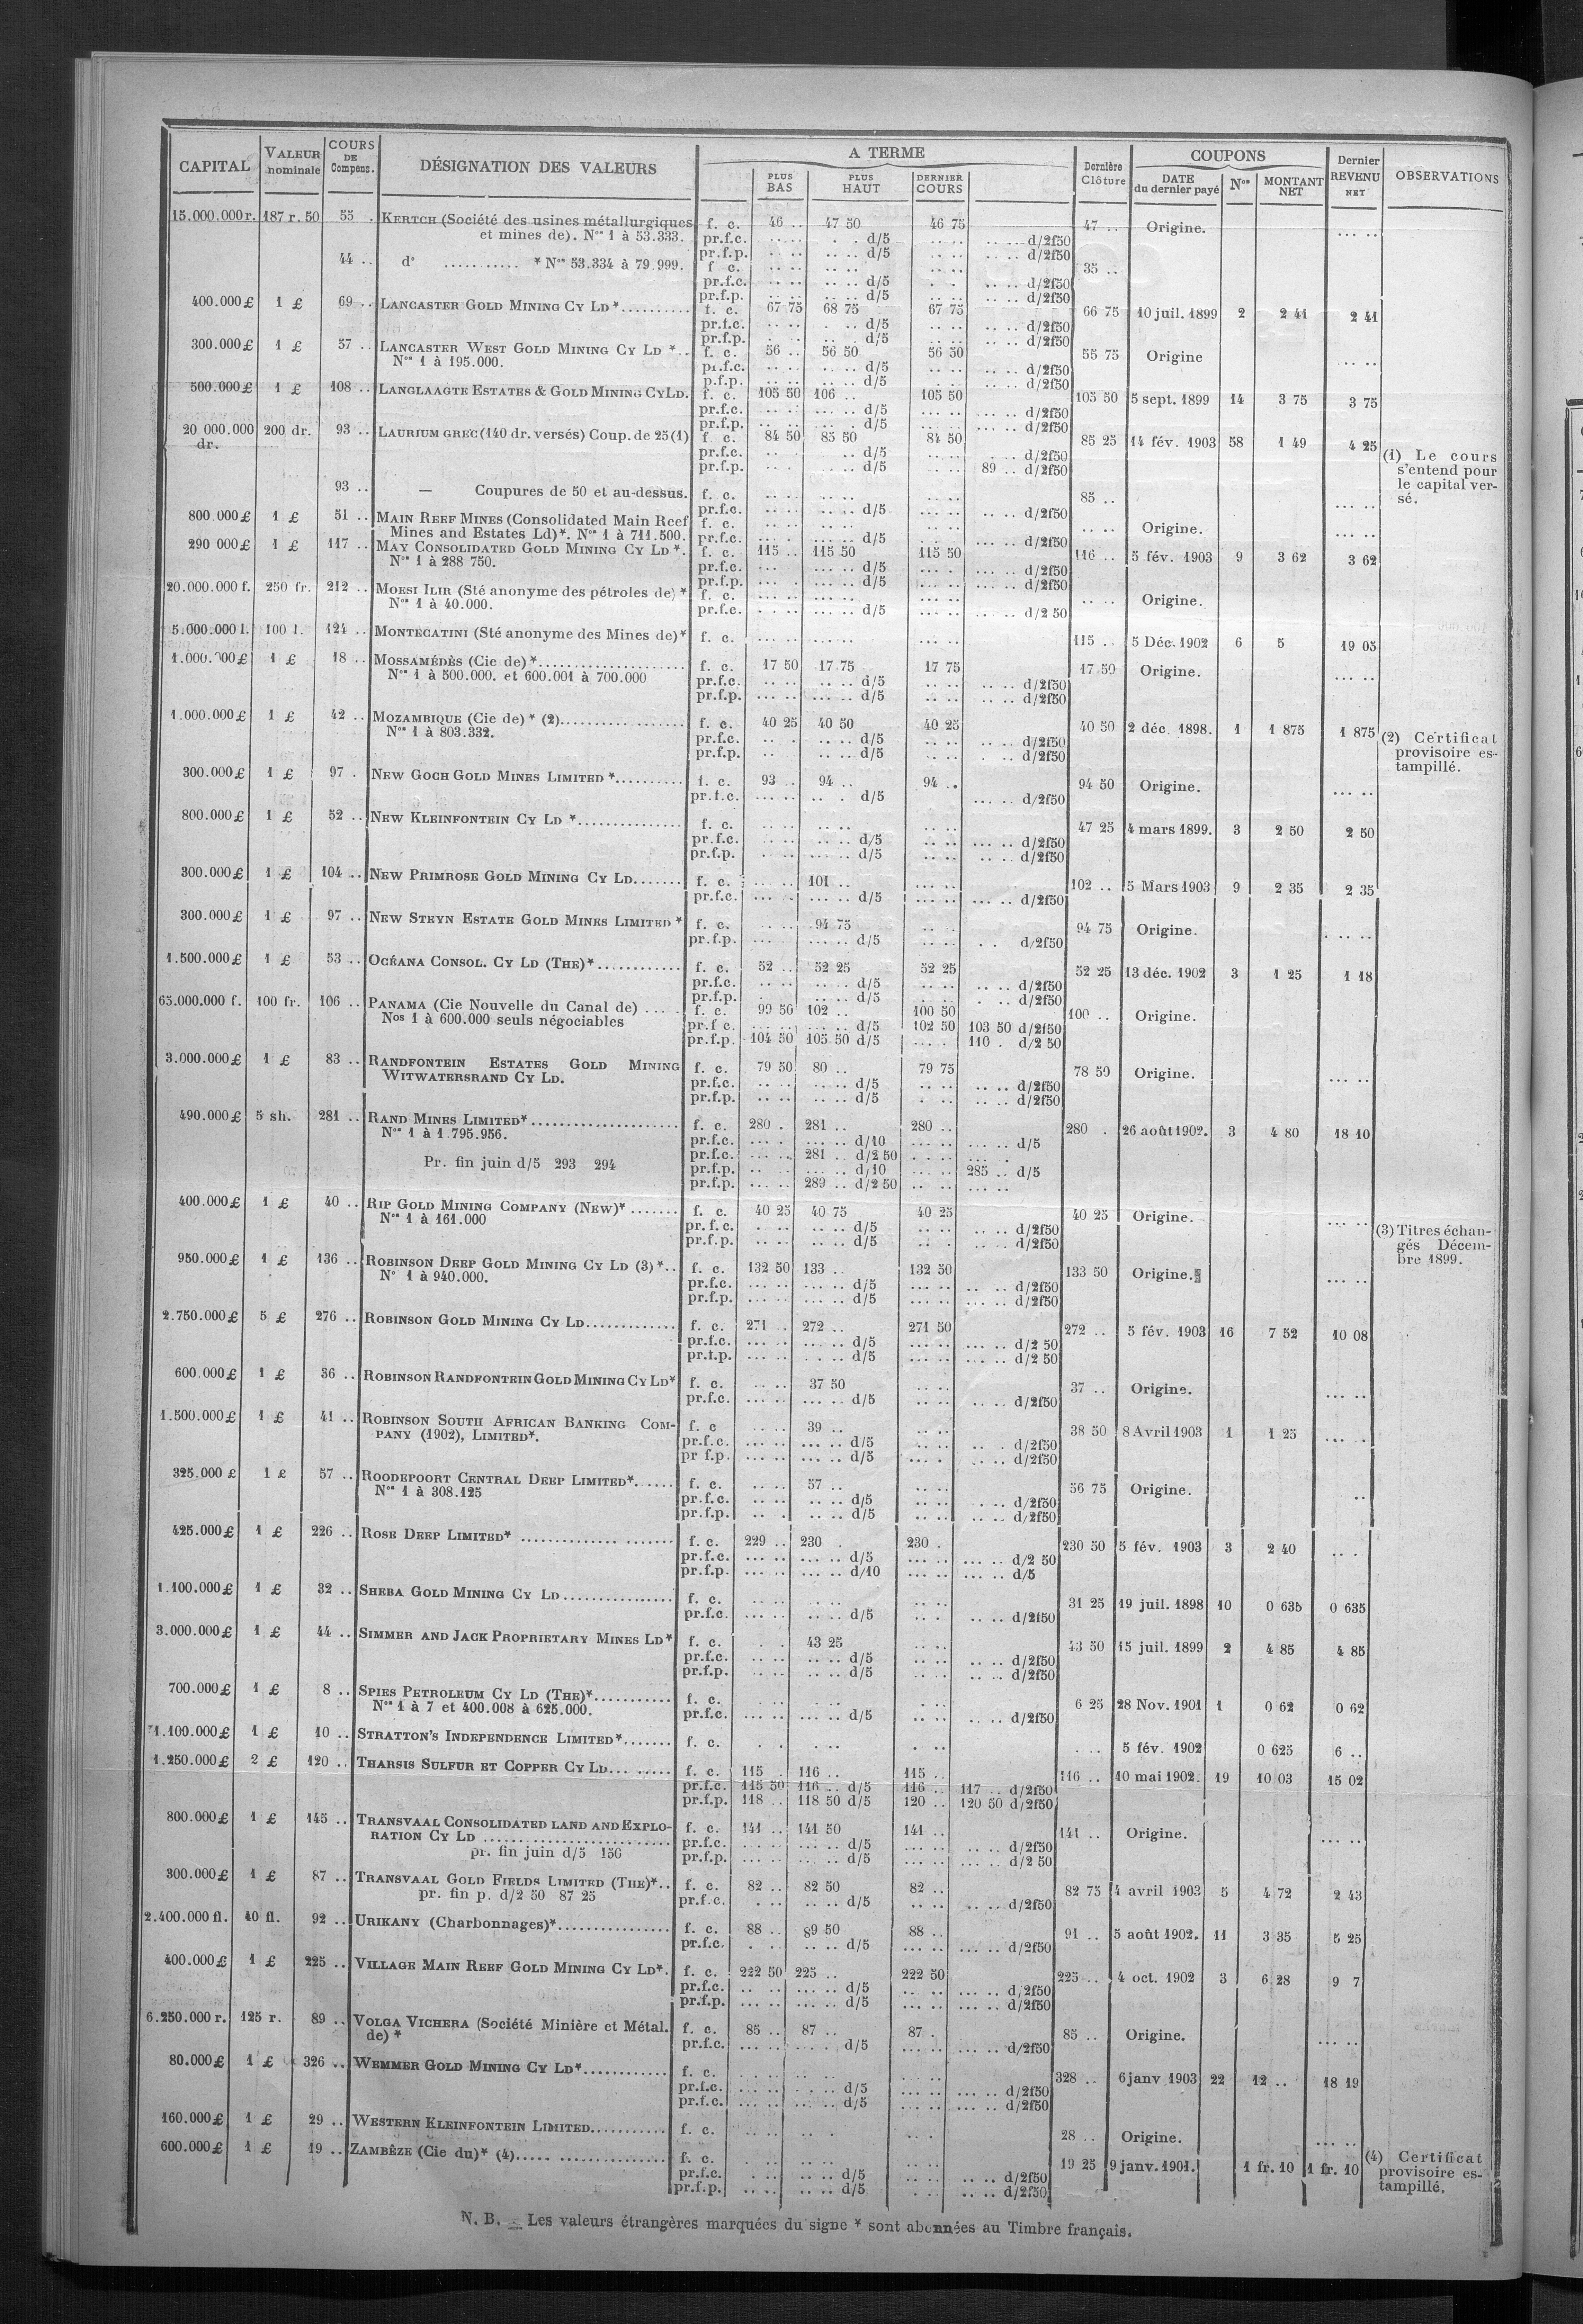 CAPITAL | VALEUR nominale | COURS DE Compens. | DÉSIGNATION DES VALEURS | A TERME | PLUS BAS | PLUS HAUT | DERNIER COURS | Dernière Clôture | COUPONS | DATE du dernier payé | Nos | MONTANT NET | Dernier REVENU NET | OBSERVATIONS
15.000.000 r. 187 r. 50 55 . KERTCH (Société des usines métallurgiques f. c. 46 .. 47 50 46 75 47 .. Origine. ... ..
et mines de). Nos 1 à 53.333. pr.f.c. d/5 d/2f50
pr.f.p. d/5 d/2f50
44 .. do ........... * Nos 53.334 à 79.999. f c. 35 ..
pr.f.c. d/5 d/2f50
pr.f.p. d/5 d/2f50
400.000 £ 1 £ 69 .. LANCASTER GOLD MINING CY LD *.......... f. c. 67 75 68 75 67 75 66 75 10 juil. 1899 2 2 41 2 41
pr.f.c. d/5 d/2f50
pr.f.p. d/5 d/2f50
300.000 £ 1 £ 57 .. LANCASTER WEST GOLD MINING CY LD *.. f. c. 56 .. 56 50 56 50 55 75 Origine ... ..
Nos 1 à 195.000. pr.f.c. d/5 d/2f50
p.f.p. d/5 d/2f50
500.000 £ 1 £ 108 .. LANGLAAGTE ESTATES & GOLD MINING CY LD. f. c. 105 50 106 .. 105 50 105 50 5 sept. 1899 14 3 75 3 75
pr.f.c. d/5 d/2f50
pr.f.p. d/5 d/2f50
20 000.000 dr. 200 dr. 93 .. LAURIUM GREC (140 dr. versés) Coup. de 25 (1) f. c. 84 50 85 50 84 50 85 25 14 fév. 1903 58 1 49 4 25
pr.f.c. d/5 d/2f50
pr.f.p. d/5 89 .. d/2f50
(1) Le cours
s'entend pour
le capital ver-
sé.
93 .. — Coupures de 50 et au-dessus. f. c. 85 .. ... ..
pr.f.c. d/5 d/2f50
800 000 £ 1 £ 51 .. MAIN REEF MINES (Consolidated Main Reef f. c. .. .. Origine. ... ..
Mines and Estates Ld)*. Nos 1 à 711.500. pr.f.c. d/5 d/2f50
290 000 £ 1 £ 117 .. MAY CONSOLIDATED GOLD MINING CY LD *. f. c. 115 .. 115 50 115 50 116 .. 5 fév. 1903 9 3 62 3 62
Nos 1 à 288 750. pr.f.c. d/5 d/2f50
pr.f.p. d/5 d/2f50
20.000.000 f. 250 fr. 212 .. MOESI ILIR (Sté anonyme des pétroles de) * f. c. .. .. Origine.
Nos 1 à 40.000. pr.f.c. d/5 d/2 50
5.000.000 l. 100 l. 124 .. MONTECATINI (Sté anonyme des Mines de)* f. c. 115 .. 5 Déc. 1902 6 5 19 05
1.000.000 £ 1 £ 18 .. MOSSAMÉDÈS (Cie de) *.................... f. c. 17 50 17 75 17 75 17 50 Origine. ... ..
Nos 1 à 500.000. et 600.001 à 700.000 pr.f.c. d/5 d/2f50
pr.f.p. d/5 d/2f50
1.000.000 £ 1 £ 42 .. MOZAMBIQUE (Cie de) * (2)................. f. c. 40 25 40 50 40 25 40 50 2 déc. 1898. 1 1 875 1 875
Nos 1 à 803.332. pr.f.c. d/5 d/2f50
pr.f.p. d/5 d/2f50
(2) Certificat
provisoire es-
tampillé.
300.000 £ 1 £ 97 . NEW GOCH GOLD MINES LIMITED *.......... f. c. 93 .. 94 .. 94 .. 94 50 Origine. ... ..
pr.f.c. d/5 d/2f50
800.000 £ 1 £ 52 .. NEW KLEINFONTEIN CY LD *............... f. c. 47 25 4 mars 1899. 3 2 50 2 50
pr.f.c. d/5 d/2f50
pr.f.p. d/5 d/2f50
300.000 £ 1 £ 104 .. NEW PRIMROSE GOLD MINING CY LD....... f. c. 101 .. 102 .. 5 Mars 1903 9 2 35 2 35
pr.f.c. d/5 d/2f50
300.000 £ 1 £ 97 .. NEW STEYN ESTATE GOLD MINES LIMITED * f. c. 94 75 94 75 Origine. . .. ..
pr.f.p. d/5 d/2f50
1.500.000 £ 1 £ 53 .. OCÉANA CONSOL. CY LD (THE)*............ f. c. 52 .. 52 25 52 25 52 25 13 déc. 1902 3 1 25 1 18
pr.f.c. d/5 d/2f50
pr.f.p. d/5 d/2f50
65.000.000 f. 100 fr. 106 .. PANAMA (Cie Nouvelle du Canal de) ..... f. c. 99 50 102 .. 100 50 100 .. Origine.
Nos 1 à 600.000 seuls négociables pr.f c. d/5 102 50 103 50 d/2f50
pr.f.p. 104 50 105 50 d/5 110 . d/2 50
3.000.000 £ 1 £ 83 .. RANDFONTEIN ESTATES GOLD MINING f. c. 79 50 80 .. 79 75 78 50 Origine. ... ..
WITWATERSRAND CY LD. pr.f.c. d/5 d/2f50
pr.f.p. d/5 d/2f50
490.000 £ 5 sh. 281 .. RAND MINES LIMITED*...................... f. c. 280 . 281 .. 280 .. 280 . 26 août 1902. 3 4 80 18 10
Nos 1 à 1.795.956. pr.f.c. d/10 d/5
pr.f.c. 281 .. d/2 50
Pr. fin juin d/5 293 294 pr.f.p. d/10 285 .. d/5
pr.f.p. 289 .. d/2 50
400.000 £ 1 £ 40 .. RIP GOLD MINING COMPANY (NEW)* ....... f. c. 40 25 40 75 40 25 40 25 Origine. ... ..
Nos 1 à 161.000 pr.f.c. d/5 d/2f50
pr.f.p. d/5 d/2f50
(3) Titres échan-
gés Décem-
bre 1899.
950.000 £ 1 £ 136 .. ROBINSON DEEP GOLD MINING CY LD (3) *.. f. c. 132 50 133 .. 132 50 133 50 Origine. ... ..
No 1 à 940.000. pr.f.c. d/5 d/2f50
pr.f.p. d/5 d/2f50
2.750.000 £ 5 £ 276 .. ROBINSON GOLD MINING CY LD............. f. c. 271 .. 272 .. 271 50 272 .. 5 fév. 1903 16 7 52 10 08
pr.f.c. d/5 d/2 50
pr.f.p. d/5 d/2 50
600.000 £ 1 £ 36 .. ROBINSON RANDFONTEIN GOLD MINING CY LD* f. c. 37 50 37 .. Origine. ... ..
pr.f.c. d/5 d/2f50
1.500.000 £ 1 £ 41 .. ROBINSON SOUTH AFRICAN BANKING COM- f. c 39 .. 38 50 8 Avril 1903 1 1 25 ... .
PANY (1902), LIMITED*. pr.f.c. d/5 d/2f50
pr f.p. d/5 d/2f50
325.000 £ 1 £ 57 .. ROODEPOORT CENTRAL DEEP LIMITED*...... f. c. 57 .. 56 75 Origine. ..
Nos 1 à 308.125 pr.f.c. d/5 d/2f50
pr.f.p. d/5 d/2f50
425.000 £ 1 £ 226 .. ROSE DEEP LIMITED* .................... f. c. 229 .. 230 . 230 . 230 50 5 fév. 1903 3 2 40 .. .
pr.f.c. d/5 d/2 50
pr.f.p. d/10 d/5
1.100.000 £ 1 £ 32 .. SHEBA GOLD MINING CY LD................ f. c. 31 25 19 juil. 1898 10 0 635 0 635
pr.f.c. d/5 d/2f50
3.000.000 £ 1 £ 44 .. SIMMER AND JACK PROPRIETARY MINES LD* f. c. 43 25 43 50 15 juil. 1899 2 4 85 4 85
pr.f.c. d/5 d/2f50
pr.f.p. d/5 d/2f50
700.000 £ 1 £ 8 .. SPIES PETROLEUM CY LD (THE)*........... f. c. 6 25 28 Nov. 1901 1 0 62 0 62
Nos 1 à 7 et 400.008 à 625.000. pr.f.c. d/5 d/2f50
1.100.000 £ 1 £ 10 .. STRATTON'S INDEPENDENCE LIMITED*....... f. c. 5 fév. 1902 0 625 6 ..
1.250.000 £ 2 £ 120 .. THARSIS SULFUR ET COPPER CY LD... ..... f. c. 115 . 116 .. 115 .. 116 .. 10 mai 1902. 19 10 03 15 02
pr.f.c. 115 50 116 .. d/5 116 .. 117 .. d/2f50
pr.f.p. 118 .. 118 50 d/5 120 .. 120 50 d/2f50
800.000 £ 1 £ 145 .. TRANSVAAL CONSOLIDATED LAND AND EXPLO- f. c. 141 .. 141 50 141 .. 141 .. Origine. ... ..
RATION CY LD ........................... pr.f.c. d/5 d/2f50
pr. fin juin d/5 150 pr.f.p. d/5 d/2 50
300.000 £ 1 £ 87 .. TRANSVAAL GOLD FIELDS LIMITED (THE)*.. f. c. 82 .. 82 50 82 .. 82 75 4 avril 1903 5 4 72 2 43
pr. fin p. d/2 50 87 25 pr.f.c. d/5 d/2f50
2.400.000 fl. 40 fl. 92 .. URIKANY (Charbonnages)*................ f. c. 88 .. 89 50 88 .. 91 .. 5 août 1902. 11 3 35 5 25
pr.f.c. d/5 d/2f50
400.000 £ 1 £ 225 .. VILLAGE MAIN REEF GOLD MINING CY LD*. f. c. 222 50 225 .. 222 50 225 .. 4 oct. 1902 3 6 28 9 7
pr.f.c. d/5 d/2f50
pr.f.p. d/5 d/2f50
6.250.000 r. 125 r. 89 .. VOLGA VICHERA (Société Minière et Métal. f. c. 85 .. 87 .. 87 . 85 .. Origine. ... ..
de) * pr.f.c. d/5 d/2f50
80.000 £ 1 £ 326 .. WEMMER GOLD MINING CY LD*............ f. c. 328 .. 6 janv 1903 22 12 .. 18 19
pr.f.c. d/5 d/2f50
pr.f.c. d/5 d/2f50
160.000 £ 1 £ 29 .. WESTERN KLEINFONTEIN LIMITED........... f. c. 28 .. Origine. ... ..
600.000 £ 1 £ 19 .. ZAMBÈZE (Cie du)* (4)..... ............... f. c. 19 25 9 janv. 1901. 1 fr. 10 1 fr. 10
pr.f.c. d/5 d/2f50
pr.f.p. d/5 d/2f50
(4) Certificat
provisoire es-
tampillé.
N. B. — Les valeurs étrangères marquées du signe * sont abonnées au Timbre français.